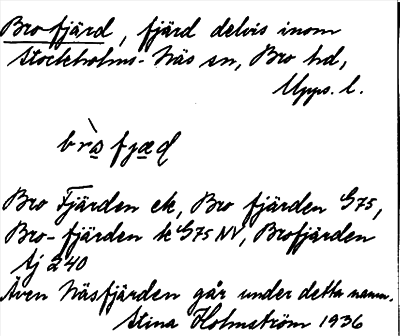 Brofjärd, fjärd delvis inom
Stockholms-Näs sn, Bro hd,
Upps. l.
brò̱fjæ̱ḍ
Bro Fjärden ek, Bro fjärden G75,
Bro-fjärden k G75 NV, Brofjärden
tj 240
Även Näsfjärden går under detta namn.
Stina Holmström 1936